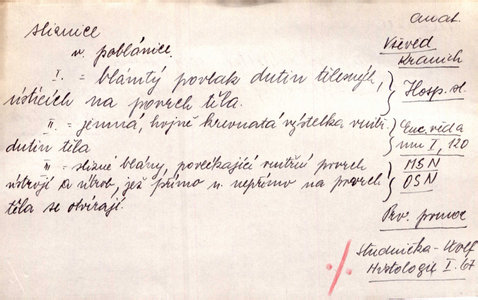 anat.
sliznice
v. poblánice.
Vševěd
Kranich
I. = blánitý povlak dutin tělesných,
ústících na povrch těla.
Hosp. sl.
II. = jemná, hojně krevnatá výstelka vnitř.
dutin těla
Enc. věd a
um I, 120
III = slizné blány, povlékající vnitřní povrch
MSN
ústrojí a útrob, jež přímo n. nepřímo na povrch
OSN
těla se otvírají.
Prv. pomoc
Studnička-Wolf
Histologie I. 67